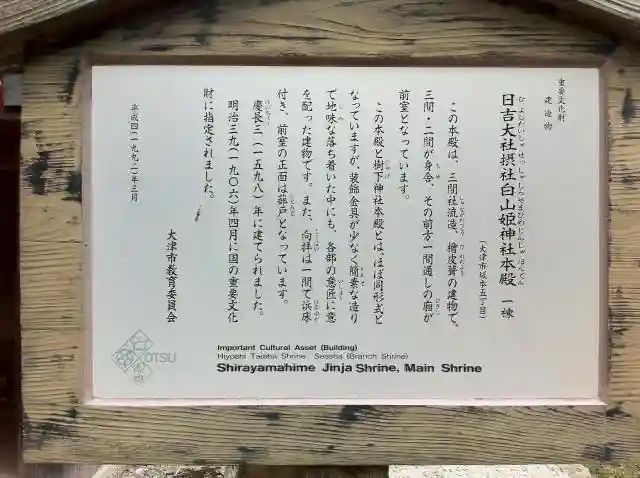 重要文化財
建造物
日吉大社摂社白山姫神社本殿 一棟
(大津市坂本五丁目)
この本殿は、三間社流造、檜皮葺の建物で、
三間・二間が身舎、その前方一間通しの廂が
前室となっています。
この本殿と樹下神社本殿とは、ほぼ同形式と
なっていますが、装飾金具が少なく簡素な造り
で地味な落ち着いた中にも、各部の意匠に意
を配った建物です。また、向拝は一間で浜床
付き、前室の正面は蔀戸となっています。
慶長三(一五九八)年に建てられました。
明治三九(一九〇六)年四月に国の重要文化
財に指定されました。
平成四(一九九二)年三月
大津市教育委員会
OTSU
Important Cultural Asset (Building)
Hiyoshi Taisha Shrine Sessha (Branch Shrine)
Shirayamahime Jinja Shrine, Main Shrine